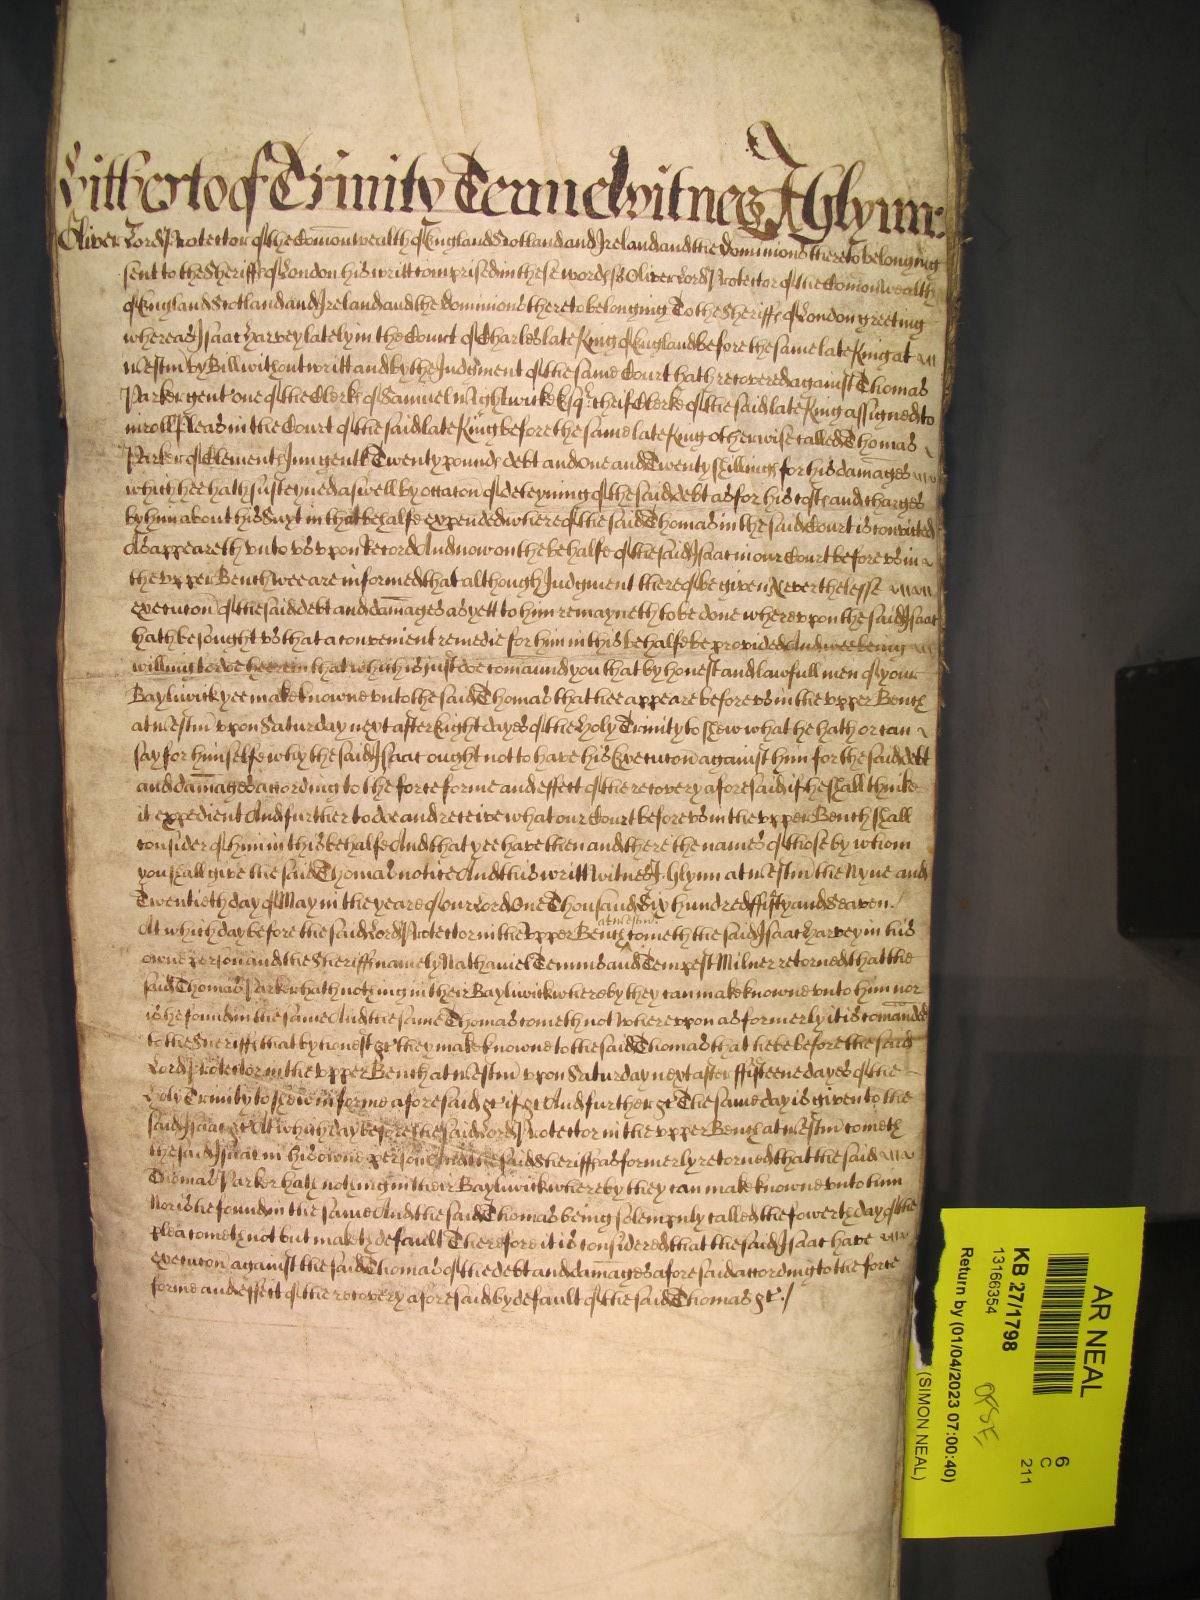 Hitherto of Trinity Terme Witnes J Glynn:
Oliver Lord Protector of the Comonwealth of England Scotland and Ireland and the dominions thereto belonging
sent to the Sheriffs of London his writt comprised in these words ss Oliver Lord Protector of the Comonwealth
of England Scotland and Ireland and the dominions thereto belonging To the Sheriffs of London greeting
whereas Isaac Harvey lately in the Court of Charles late King of England before the same late King at
Westm by Bill without writt and by the Judgment of the same Court hath recovered against Thomas
Parker gent one of the Clerks of Samuel Wightwicke Esqr cheif Clerke of the said late King assigned to
inroll Pleas in the Court of the said late King before the same late King otherwise called Thomas
Parker of Clements Inn gent Twenty pounds debt and One and Twenty shillings for his damages
which hee hath susteyned aswell by occacon of deteyning of the said debt as for his costs and charges
by him about his Suyt in that behalfe expended whereof the said Thomas in the said Court is convicted
As appeareth unto us upon Record And now on the behalfe of the said Isaac in our Court before us in
the upper Bench wee are informed that although Judgment thereof be given Neverthelesse
execucon of the said debt and damages as yett to him remayneth to be done whereupon the said Isaac
hath besought us that a convenient remedie for him in this behalfe be provided And wee being
willing to doe herein that which is just doe comaund you that by honest and lawfull men of your
Bayliwick yee make knowne unto the said Thomas that hee appeare before us in the upper Bench
at Westm upon Saturday next after Eight dayes of the Holy Trinity to shew what he hath or can
say for himselfe why the said Isaac ought not to have his Execucon against him for the said debt
and damages according to the force forme and effect of the recovery aforesaid if he shall thinke
it expedient And further to doe and receive what our Court before us in the upper Bench shall
consider of him in this behalfe And that yee have then and there the names of those by whom
you shall give the said Thomas notice And this writt Witnes J. Glynn at Westm the Nyne and
Twentieth day of May in the yeare of our Lord One Thousand Six hundred ffifty and Seaven./
At which day before the said Lord Protector in the upper Bench at Westm cometh the said Isaac Harvey in his
owne person and the Sheriffs namely Nathaniel Temms and Tempest Milner retorned that the
said Thomas Parker hath nothing in their Bayliwick whereby they can make knowne unto him nor
is he found in the same And the same Thomas cometh not Whereupon as formerly it is comanded
to the Sheriffs that by honest &c they make knowne to the said Thomas that he be before the said
Lord Protector in the upper Bench at Westm upon Saturday next after ffifteene dayes of the
Holy Trinity to shew in forme aforesaid &c if &c And further &c The same day is given to the
said Isaac &c At which day before the said Lord Protector in the upper Bench at Westm cometh
the said Isaac in his owne person And the said Sheriffs as formerly retorned that the said
Thomas Parker hath nothing in their Bayliwick whereby they can make knowne unto him
Nor is he found in the same And the said Thomas being solempnly called the fowerth day of the
plea cometh not but maketh default Therefore it is considered that the said Isaac have
execucon against the said Thomas of the debt and damages aforesaid according to the force
forme and effect of the recovery aforesaid by default of the said Thomas &c./
AR NEAL
KB 27/1798
13166354
Return by (01/04/2023 07:00:40)
(SIMON NEAL)
6
C
211